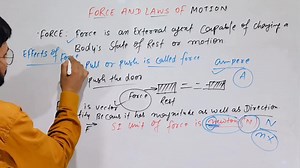 FORCE AND LAWS OF MOTION
FORCE: Force is an External agent Capable of changing a
Body's State of Rest or motion
Effects of Force
Pull or push is called force
ampere
push the door
A
Force
Rest
is vector
Because it has magnitude as well as Direction
F SI unit of force is Newton N